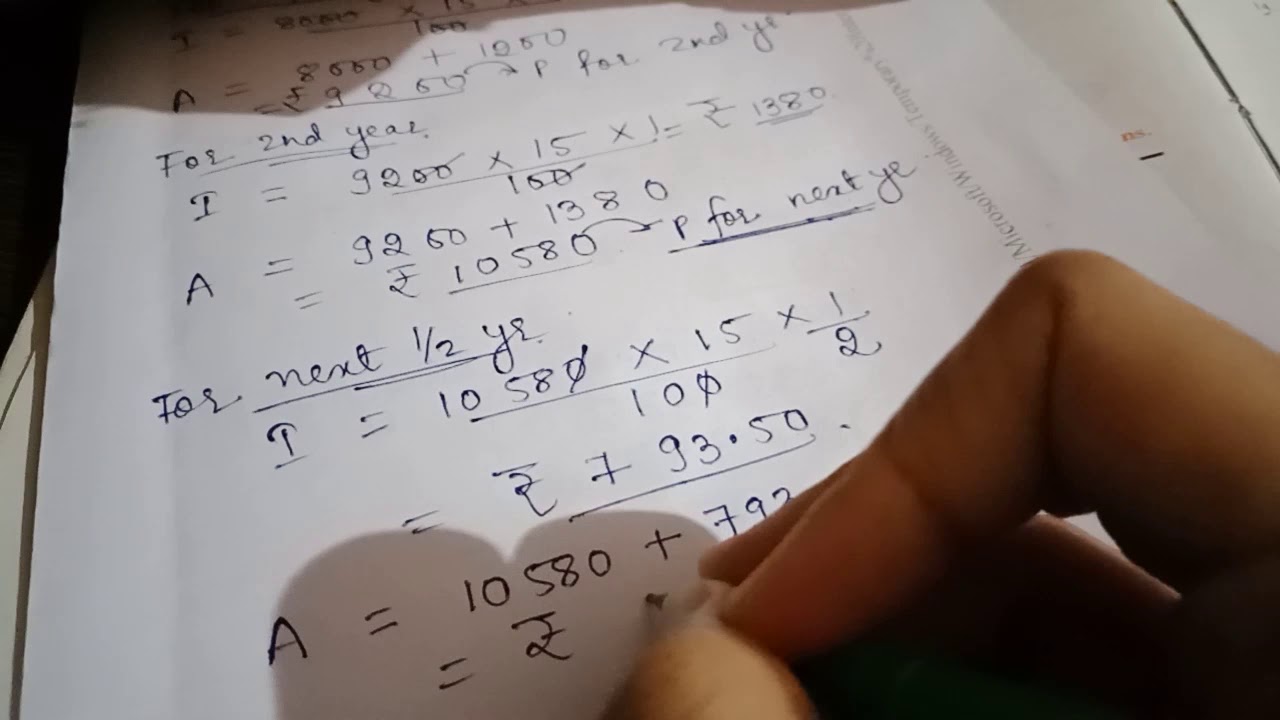 I = 8000 × 15 ×
100
A = 8000 + 1200
= ₹ 9200 → P for 2nd ye
For 2nd year
I = 9200 × 15 × 1 = ₹ 1380
100
A = 9200 + 1380
= ₹ 10580 → P for next ye
For next 1/2 yr.
I = 10580 × 15 × 1/2
100
= ₹ 793.50
A = 10580 + 793
= ₹
/Microsoft/Windows
ns.